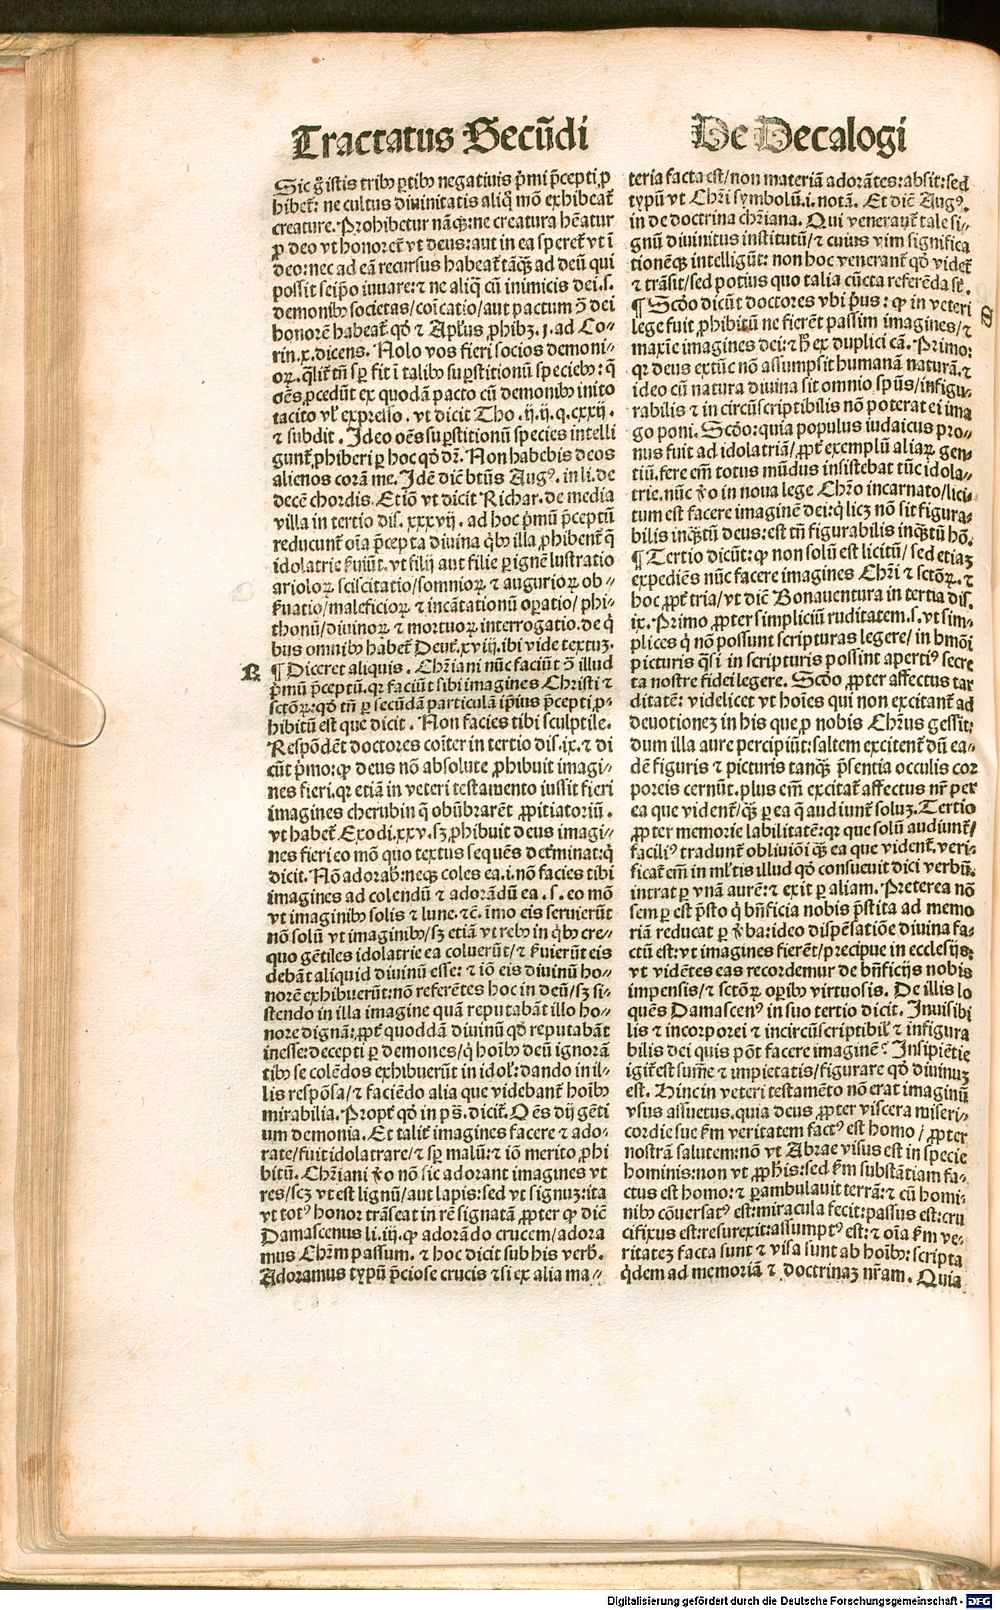 Tractatus Secūdi
De Decalogi
Sic g̊ istis tribꝰ ꝑtibꝰ negatiuis p̄mi p̄cepti ꝓ
hibet᷑: ne cultus diuinitatis aliq̊ mō exhibeat᷑
creature. Prohibetur nāqꝫ: ne creatura hēatur
ꝓ deo vt honoret᷑ vt deus: aut in ea speret᷑ vt ī
deo: nec ad eā recursus habeat᷑ tāqꝫ ad deū qui
possit seip̄o iuuare: ⁊ ne aliq̄ cū inimicis dei .s.
demonibꝰ societas/coīcatio/aut pactum ꝯ dei
honorē habeat᷑ qd̓ ⁊ Apl̓us ꝓhibꝫ .j. ad Co⸗
rin.x. dicens. Nolo vos fieri socios demoni⸗
oꝝ. q̄lit᷑ tn̄ sꝑ fit ī talibꝰ suꝑstitionū speciebꝰ: q̄
oēs ꝓcedūt ex quodā pacto cū demonibꝰ inito
tacito vl̓ expresso. vt dicit Tho. ij.ij. q.cxxij.
⁊ subdit. Ideo oēs suꝑstitionū species intelli
gunt᷑ ꝓhiberi ꝑ hoc qd̓ dr̄. Non habebis deos
alienos corā me. Idē dic̄ btūs Augꝰ. in li. de
decē chordis. Etiō vt dicit Richar. de media
villa in tertio dis. xxxvij. ad hoc p̄mū p̄ceptū
reducunt᷑ oīa p̄cepta diuina q̇bꝰ illa ꝓhibent᷑ q̄
idolatrie ẜuiūt. vt filij aut filie ꝑ ignē lustratio
arioloꝝ sciscitatio/somnioꝝ ⁊ auguriоꝝ ob⸗
ẜuatio/maleficioꝝ ⁊ incātationū oꝑatio/phi⸗
thonū/diuinoꝝ ⁊ mortuoꝝ interrogatio. de q̇
bus omnibꝰ habet᷑ Deut᷑. xviij. ibi vide textuꝫ.
R ¶ Diceret aliquis. Chr̄iani nūc faciūt ꝯ illud
p̄mū p̄ceptū. qꝛ faciūt sibi imagines Christi ⁊
sctōꝝ: qd̓ tn̄ ꝑ secūdā particulā ip̄ius p̄cepti ꝓ⸗
hibitū est que dicit. Non facies tibi sculptile.
Respōdēt doctores coīter in tertio dis. ix. ⁊ di
cūt p̄mo: ꝙ deus nō absolute ꝓhibuit imagi⸗
nes fieri. qꝛ etiā in veteri testamento iussit fieri
imagines cherubin q̄ obūbrarēt ꝓpitiatoriū.
vt habet᷑ Exodi. xxv. sꝫ ꝓhibuit deus imagi⸗
nes fieri eo mō quo textus sequēs det᷑minat: q̇
dicit. Nō adorab: neqꝫ coles ea .i. nō facies tibi
imagines ad colendū ⁊ adorādū ea .s. eo mō
vt imaginibꝰ solis ⁊ lune. ⁊c̄. imo eis seruierūt
nō solū vt imaginibꝰ/sꝫ etiā vt rebꝰ in q̇bꝰ cre⸗
quo gētiles idolatrie ea coluerūt/⁊ ẜuierūt eis
debāt aliquid diuinū esse: ⁊ iō eis diuinū ho⸗
norē exhibuerūt: nō referētes hoc in deū/sꝫ si⸗
stendo in illa imagine quā reputabāt illo ho⸗
nore dignā: ꝓpt᷑ quoddā diuinū qd̓ reputabāt
inesse: decepti ꝑ demones/q̇ hoībꝰ deū ignorā
tibꝰ se colēdos exhibuerūt in idol᷑: dando in il⸗
lis respōsa/⁊ faciēdo alia que videbant᷑ hoībꝰ
mirabilia. Propt᷑ qd̓ in ps̄. dicit᷑. Oēs dij gēti
um demonia. Et talit᷑ imagines facere ⁊ ado⸗
rare/fuit idolatrare/⁊ sꝑ malū: ⁊ iō merito ꝓhi
bitū. Chr̄iani v̓o nō sic adorant imagines vt
res/scꝫ vt est lignū/aut lapis: sed vt signuꝫ: ita
vt totꝰ honor trāseat in rē signatā ꝓpter ꝙ dic̄
Damascenus li. iij. ꝙ adorādo crucem/adora
mus Chr̄m passum. ⁊ hoc dicit sub his verb᷑.
Adoramus typū p̄ciose crucis ⁊ si ex alia ma⸗
teria facta est/non materiā adorātes: absit: sed
typū vt Chr̄i symbolū .i. notā. Et dic̄ Augꝰ.
in de doctrina chr̄iana. Qui venerat᷑ tale si⸗
gnū diuinitus institutū/⁊ cuius vim significa
tionēqꝫ intelligūt: non hoc venerant᷑ qd̓ videt᷑
⁊ trāsit/sed potius quo talia cūcta referēda sūt.
S ¶ Scd̓o dicūt doctores vbi p̄us: ꝙ in veteri
lege fuit ꝓhibitū ne fierēt passim imagines/⁊
maxīe imagines dei: ⁊ h̓ ex duplici cā. Primo:
qꝛ deus extūc nō assumpsit humanā naturā. ⁊
ideo cū natura diuina sit omnio sp̄us/infigu⸗
rabilis ⁊ incircūscriptibilis nō poterat ei ima
go poni. Scd̓o: quia populus iudaicus pro⸗
nus fuit ad idolatriā/ꝓpt᷑ exemplū aliaꝝ gen⸗
tiū. fere em̄ totus mūdus insistebat tūc idola⸗
trie. nūc v̓o in noua lege Chr̄o incarnato/lici⸗
tum est facere imaginē dei: q̇ licꝫ nō sit figura⸗
bilis inqꝫtū deus: est tn̄ figurabilis inqꝫtū hō.
¶ Tertio dicūt: ꝙ non solū est licitū/sed etiaꝫ
expediēs nūc facere imagines Chr̄i ⁊ sctōꝝ. ⁊
hoc ꝓpt᷑ tria/vt dic̄ Bonauentura in tertia dis.
ix. Primo ꝓpter simpliciū ruditatem .s. vt sim⸗
plices q̇ nō possunt scripturas legere/in hmōi
picturis q̄si in scripturis possint apertiꝰ secre
ta nostre fidei legere. Scd̓o ꝓpter affectus tar
ditatē: videlicet vt hoīes qui non excitant᷑ ad
deuotionez in his que ꝓ nobis Chr̄us gessit:
dum illa aure percipiūt: saltem excitent᷑ dū ea⸗
dē figuris ⁊ picturis tanqꝫ p̄sentia occulis cor
poreis cernūt. plus em̄ excitat᷑ affectus nr̄ per
ea que vident᷑/qꝫ ꝑ ea q̄ audiunt᷑ soluꝫ. Tertio
ꝓpter memorie labilitatē: qꝛ que solū audiunt᷑/
faciliꝰ tradunt᷑ obliuiōi qꝫ ea que vident᷑. veri⸗
ficat᷑ em̄ in ml̓tis illud qd̓ consueuit dici verbū.
intrat ꝑ vnā aurē: ⁊ exit ꝑ aliam. Preterea nō
semꝑ est p̄sto q̇ bn̄ficia nobis p̄stita ad memo
riā reducat ꝑ v̓ba: ideo dispēsatiōe diuina fa⸗
ctū est: vt imagines fierēt/precipue in ecclesijs:
vt vidētes eas recordemur de bn̄ficijs nobis
impensis/⁊ sctōꝝ oꝑibꝰ virtuosis. De illis lo
quēs Damascenꝰ in suo tertio dicit. Inuisibi
lis ⁊ incorporei ⁊ incircūscriptibil᷑ ⁊ infigura
bilis dei quis pōt facere imaginē? Insipiētie
igit᷑ est sum̄e ⁊ impietatis/figurare qd̓ diuinuꝫ
est. Hinc in veteri testamēto nō erat imaginū
vsus assuetus. quia deus ꝓpter viscera miseri⸗
cordie sue ẜm veritatem factꝰ est homo/ꝓpter
nostrā salutem: nō vt Abrae visus est in specie
hominis: non vt ꝓph̄is: sed ẜm substātiam fa⸗
ctus est homo: ⁊ ꝑambulauit terrā: ⁊ cū homi⸗
nibꝰ cōuersatꝰ est: miracula fecit: passus est: cru
cifixus est: resurexit: assumptꝰ est: ⁊ oīa ẜm ve⸗
ritatez facta sunt ⁊ visa sunt ab hoībꝰ: scripta
q̇dem ad memoriā ⁊ doctrinaꝫ nr̄am. Quia
Digitalisierung gefördert durch die Deutsche Forschungsgemeinschaft - DFG